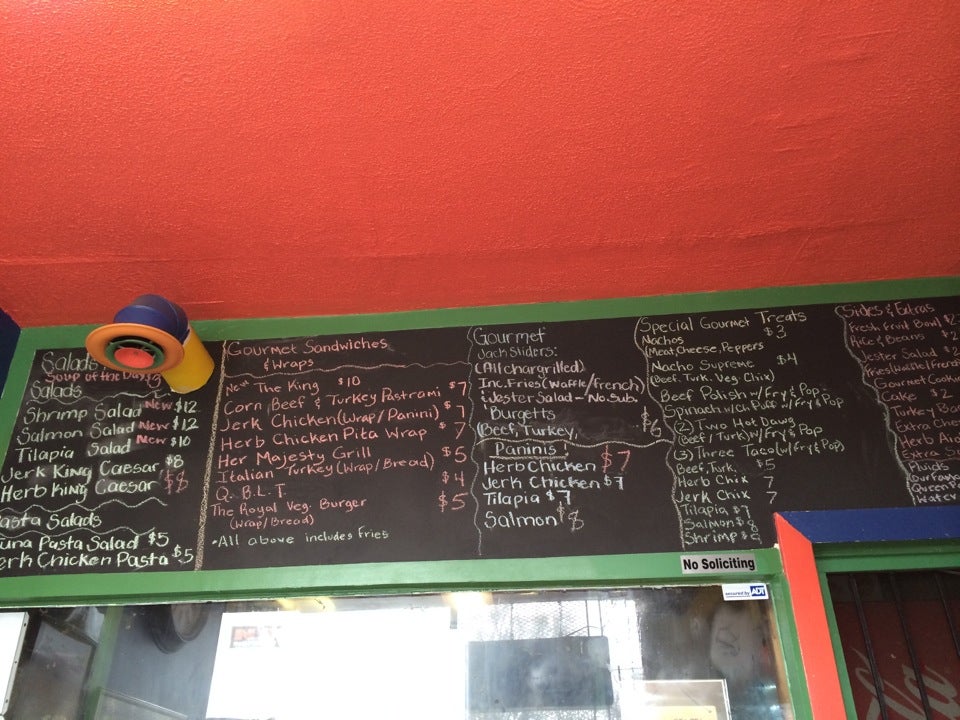 Salads
Soup of the Day
Salads
Shrimp Salad New $12
Salmon Salad New $12
Tilapia Salad New $10
Jerk King Caesar $8
Herb King Caesar $8
Pasta Salads
una Pasta Salad $5
erk Chicken Pasta $5
Gourmet Sandwiches
& Wraps
New The King $10
Corn Beef & Turkey Pastrami $7
Jerk Chicken (Wrap/Panini) $7
Herb Chicken Pita Wrap $7
Her Majesty Grill $5
Italian Turkey (Wrap/Bread)
Q. B.L.T. $4
The Royal Veg. Burger $5
(Wrap/Bread)
*All above includes fries
Gourmet
Jack Sliders:
(All chargrilled)
Inc. Fries (Waffle/French)
Jester Salad - No Sub.
Burgetts
(Beef, Turkey, $6
Paninis
Herb Chicken $7
Jerk Chicken $7
Tilapia $7
Salmon $8
Special Gourmet Treats
Nachos $3
Meat, Cheese, Peppers
Nacho Supreme $4
(Beef. Turk. Veg. Chix)
Beef Polish w/fry & Pop
Spinach w/ Puff w/fry & Pop
(2) Two Hot Dawg
(Beef/Turk) w/fry & Pop
(3) Three Taco (w/fry & Pop)
Beef, Turk. $5
Herb Chix 7
Jerk Chix 7
Tilapia $7
Salmon $8
Shrimp $8
Sides & Extras
Fresh Fruit Bowl $2
Rice & Beans $2
Jester Salad $2
Fries (Waffle/French
Gourmet Cooki
Cake $2
Turkey Bac
Extra Che
Herb Aio
Extra S
Fluids
Our Famo
Queen
Water
No Soliciting
secured by ADT